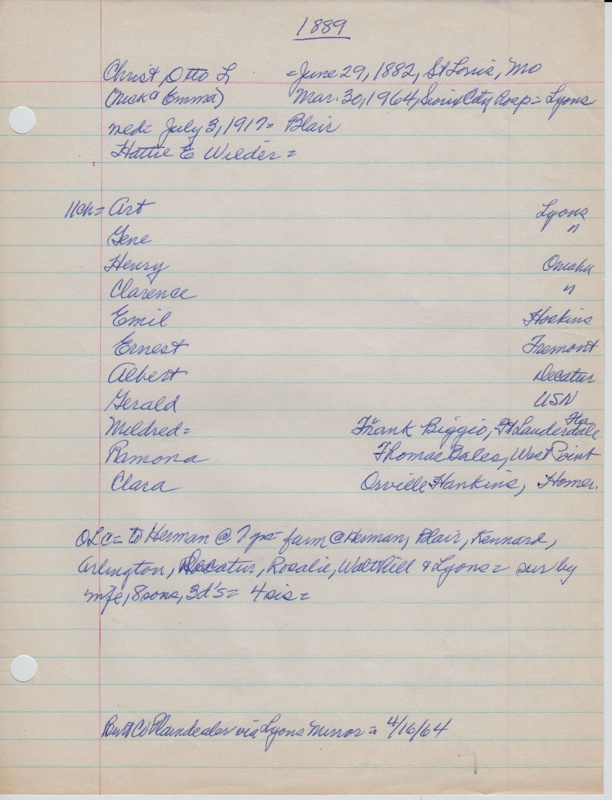 1889
Christ, Otto L = June 29, 1882, St Louis, Mo
( & Emma) Mar. 30, 1964, Sioux City Hosp = Lyons
med: July 3, 1917 = Blair
Hattie E Wilder =
11ch = Art Lyons
Gene "
Henry Omaha
Clarence "
Emil Hoskins
Ernest Fremont
Albert Decatur
Gerald USN
Mildred = Frank Biggio, Ft Lauderdale Fla
Ramona Thomas Bales, West Point
Clara Orville Hankins, Homer.
OLC = to Herman @ 7 yrs = farm @ Herman, Blair, Kennard,
Arlington, Decatur, Rosalie, Walthill & Lyons = sur by
wife, 8 sons, 3 d's = 4 sis =
Burt Co Plaindealer via Lyons Mirror = 4/16/64